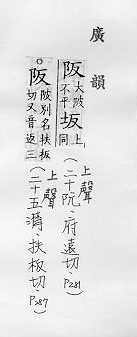 廣韻
阪大陂不平坂上同
上聲(二十阮·府遠切·P281
阪陂別名扶板切又音返三
上聲(二十五潸·扶板切·P287